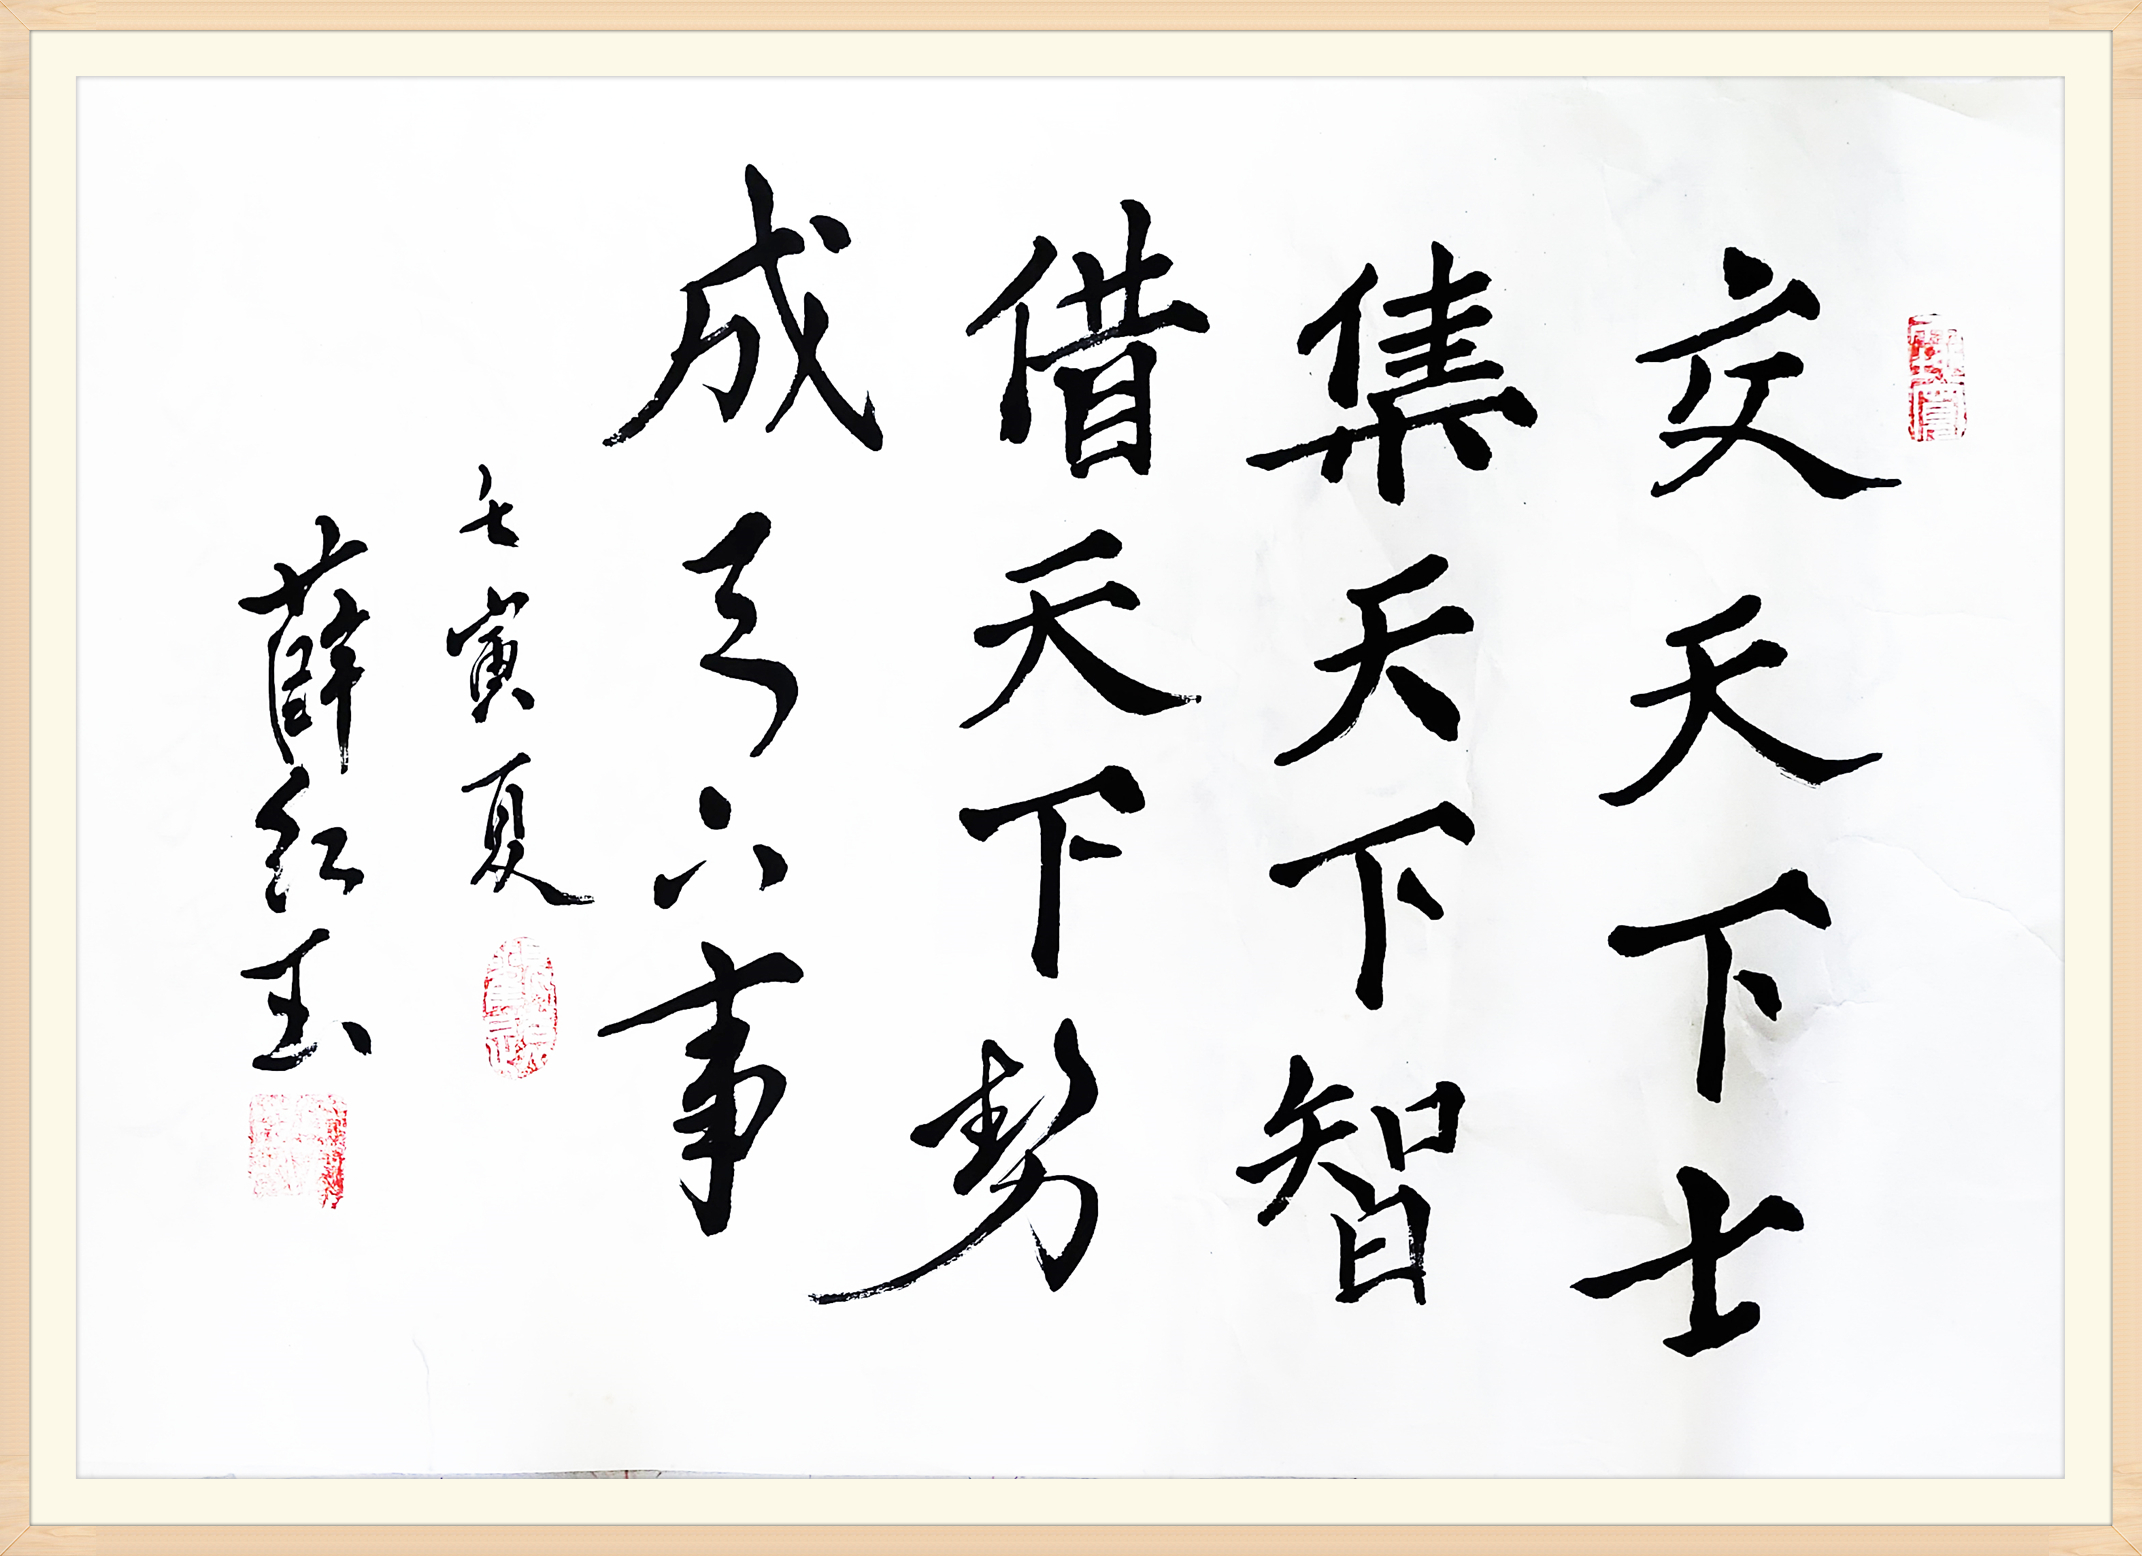 交天下士
集天下智
借天下勢
成天下事
壬寅夏
薛红玉